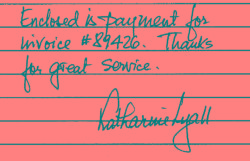 Enclosed is payment for
invoice #89426. Thanks
for great service.
Katharine Lyall